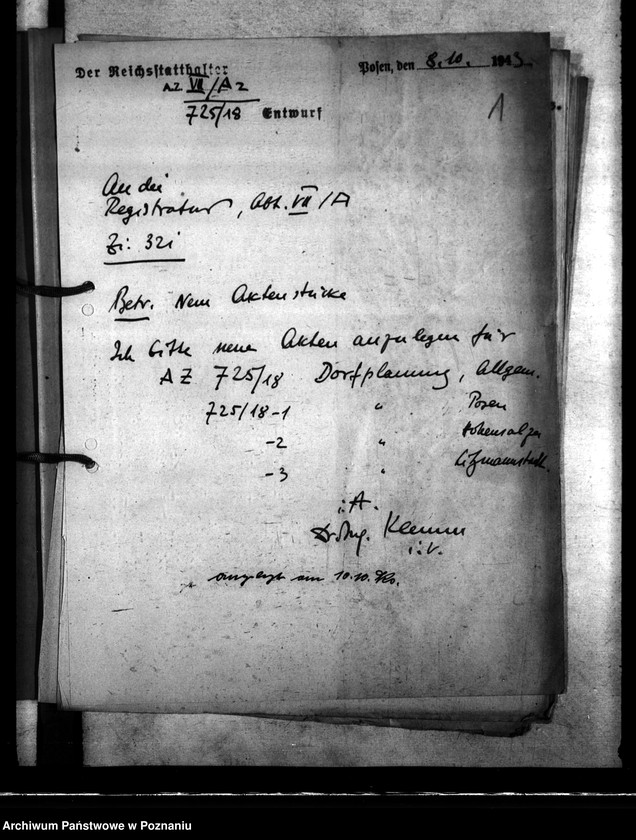 Der Reichsstatthalter
Posen, den 8.10. 1943.
A.Z. VII/A2
725/18 Entwurf
1
An die
Registratur, Abt. VII/A
Zi: 321
Betr. Neue Aktenstücke
Ich bitte neue Akten anzulegen für
AZ 725/18 Dorfplanung, Allgem.
725/18-1 " Posen
-2 " Hohensalza
-3 " Litzmannstadt.
i.A.
Dr. Ing. Klemm
i.V.
angelegt am 10.10.
Archiwum Państwowe w Poznaniu